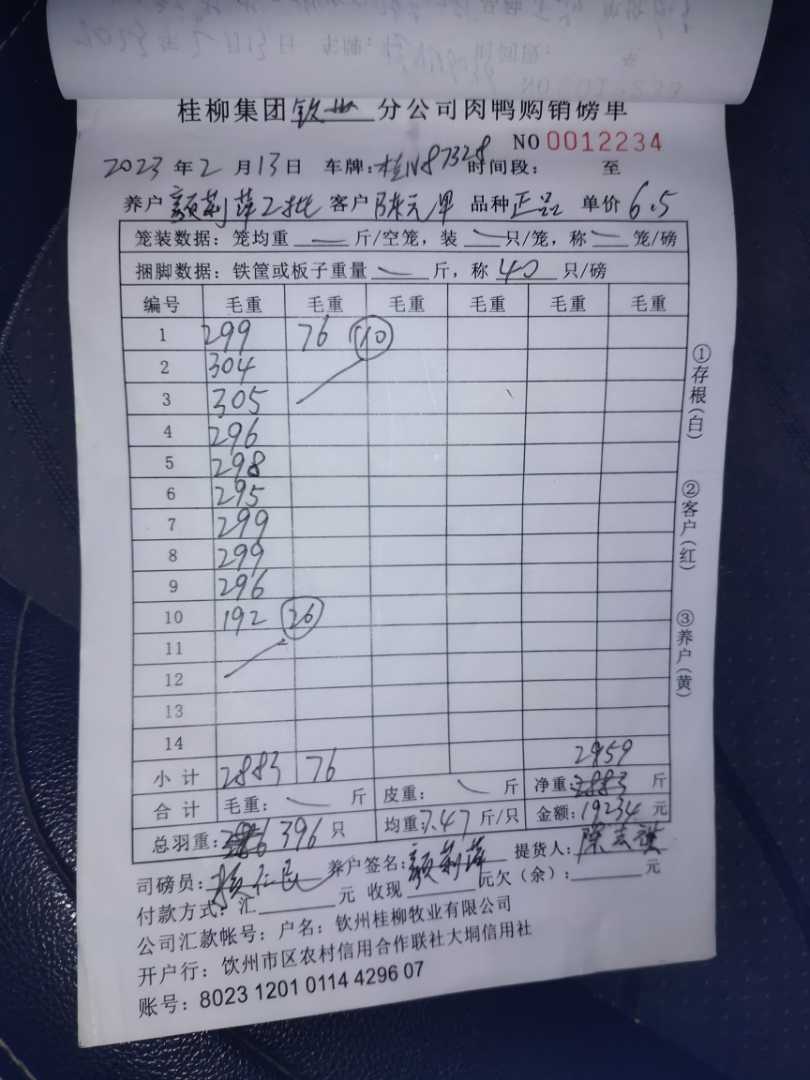 桂柳集团 钦州 分公司肉鸭购销磅单
NO 0012234
2023 年 2 月 13 日 车牌: 桂N87328 时间段: 至
养户 颜莉萍2批 客户 陈元 品种 正品 单价 6.5
笼装数据: 笼均重 斤/空笼, 装 只/笼, 称 笼/磅
捆脚数据: 铁筐或板子重量 斤, 称 40 只/磅
编号 毛重 毛重 毛重 毛重 毛重 毛重
1 299 76 (10)
2 304
3 305
4 296
5 298
6 295
7 299
8 299
9 296
10 192 (26)
11
12
13
14
2959
小计 2883 76
合计 毛重: 斤 皮重: 斤 净重: 2883 斤
总羽重: 396 只 均重 7.47 斤/只 金额: 19234 元
司磅员: 养户签名: 颜莉萍 提货人: 陈
付款方式: 汇 元 收现 元欠(余): 元
公司汇款帐号: 户名: 钦州桂柳牧业有限公司
开户行: 饮州市区农村信用合作联社大垌信用社
账号: 8023 1201 0114 4296 07
①存根(白)
②客户(红)
③养户(黄)